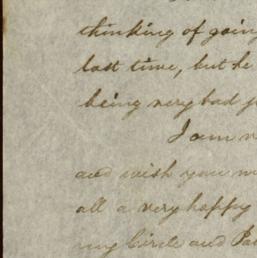 thinking of goin
last time, but he
being very bad
I am
and wish you
all a very happy
my Circle and